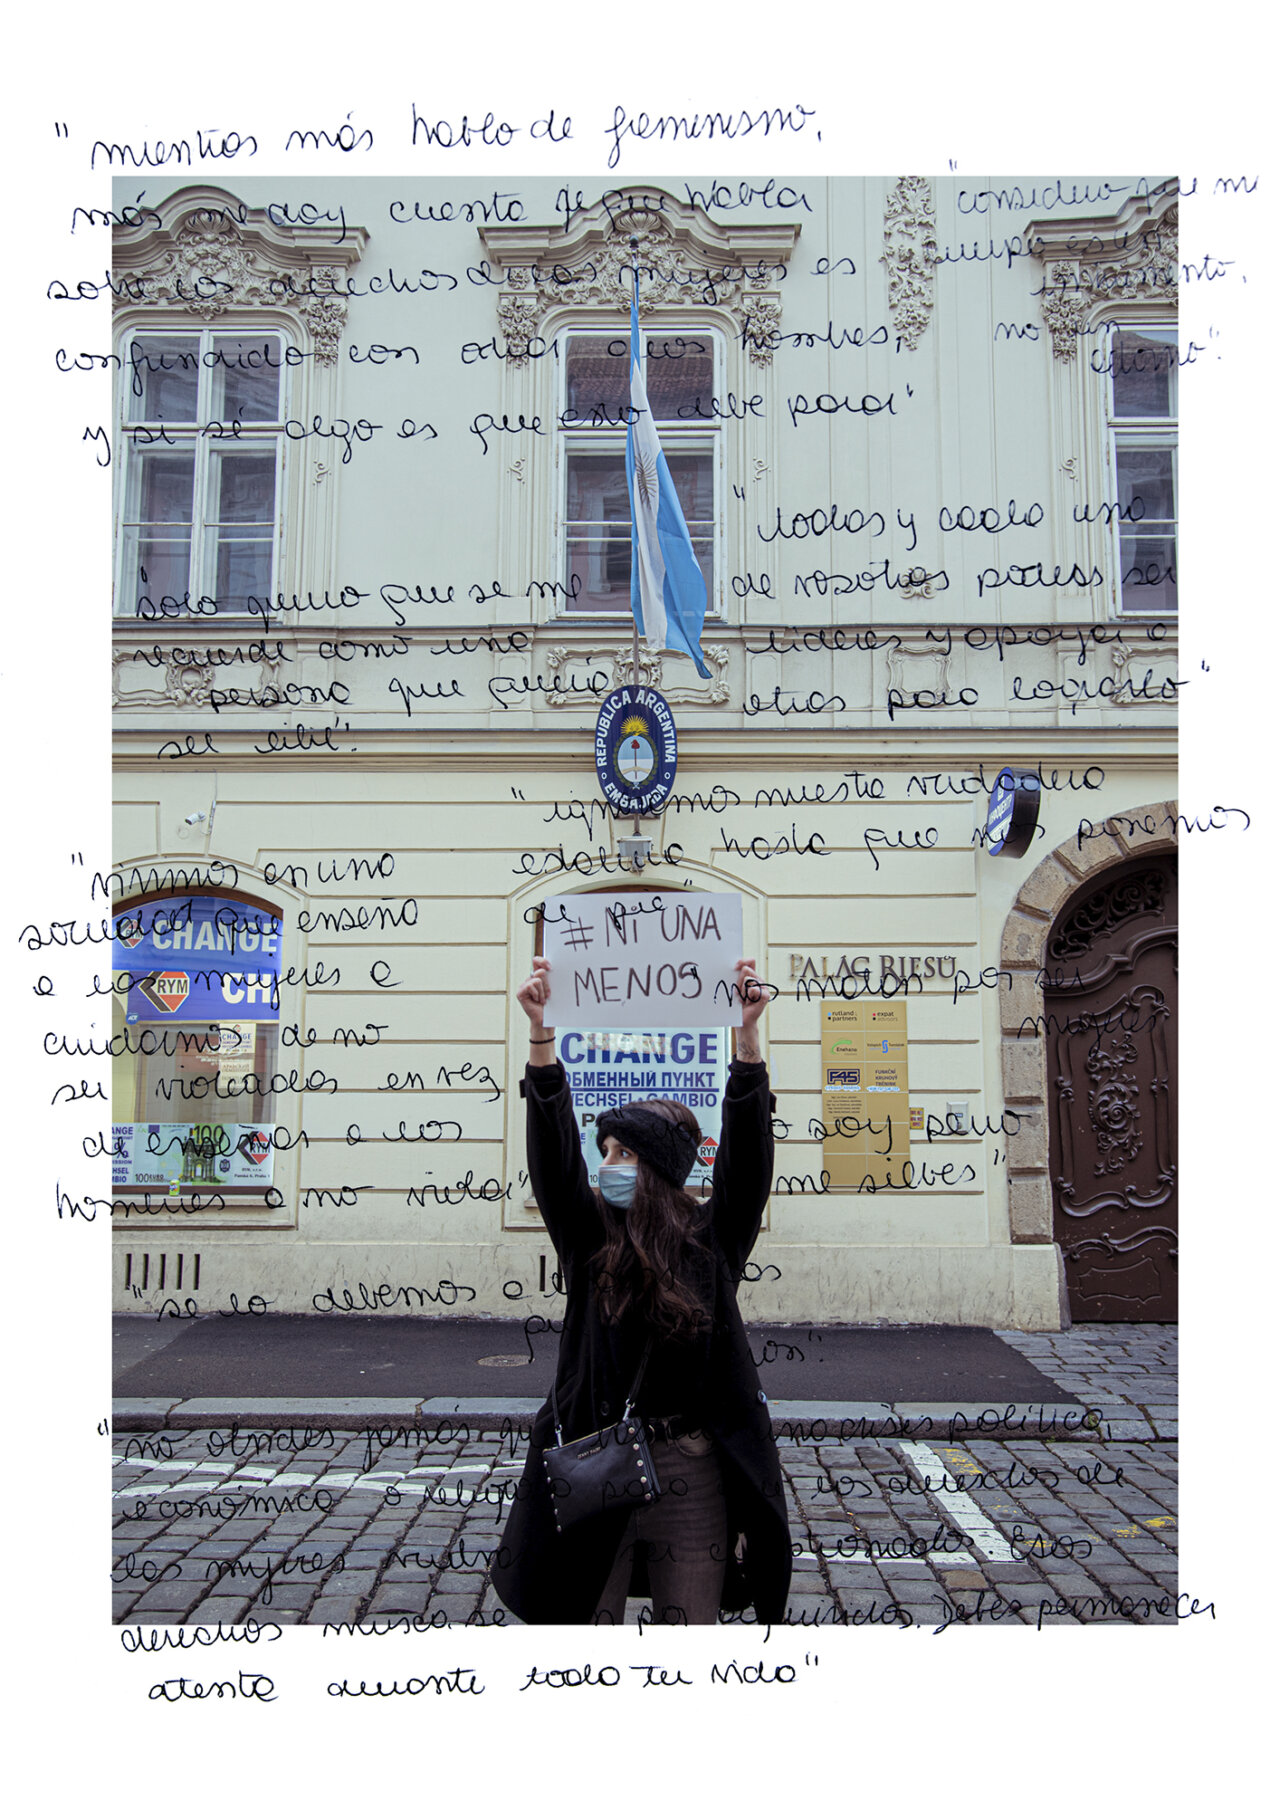 "mientras más hablo de feminismo,
más me doy cuenta de que hablar
sobre los derechos de las mujeres es
confundido con odiar a los hombres,
y si sé algo es que esto debe parar"
"considero que mi
cuerpo es un
instrumento,
no un
adorno".
"todas y cada una
de vosotras podéis ser
líderes y apoyar a
otras para lograrlo"
"solo quiero que se me
recuerde como una
persona que quería
ser libre".
REPUBLICA ARGENTINA
EMBAJADA
"ignoramos nuestra verdadera
estatura hasta que nos ponemos
de pie"
"vivimos en una
sociedad que enseña
a las mujeres a
cuidarnos de no
ser violadas en vez
de enseñar a los
hombres a no violar"
# NI UNA
MENOS
"nos matan por ser
mujeres
PALÁC RIESŮ
CHANGE
RYM
CH
CHANGE
ОБМЕННЫЙ ПУНКТ
WECHSEL·CAMBIO
RYM
rutland
partners
expat
Enehano
F45
FUNKČNÍ
KRUHOVÝ
TRÉNINK
100
100 EURO
RYM
o soy perro
me silbes"
"se lo debemos a
"no olvides jamás que crisis política,
económica o religiosa para que los derechos de
las mujeres vuelvan ser cuestionados. Esos
derechos nunca se por adquiridos. Debes permanecer
atenta durante toda tu vida"